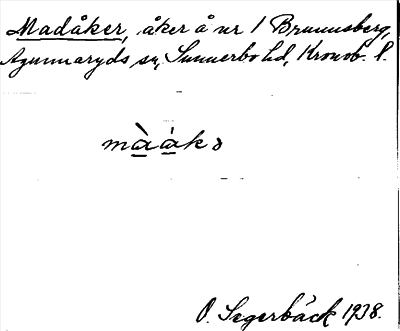 Madåker, åker å nr 1 Brunnsberg,
Agunnaryds sn, Sunnerbo hd, Kronob. l.
màákɚ
O. Segerbäck 1938.